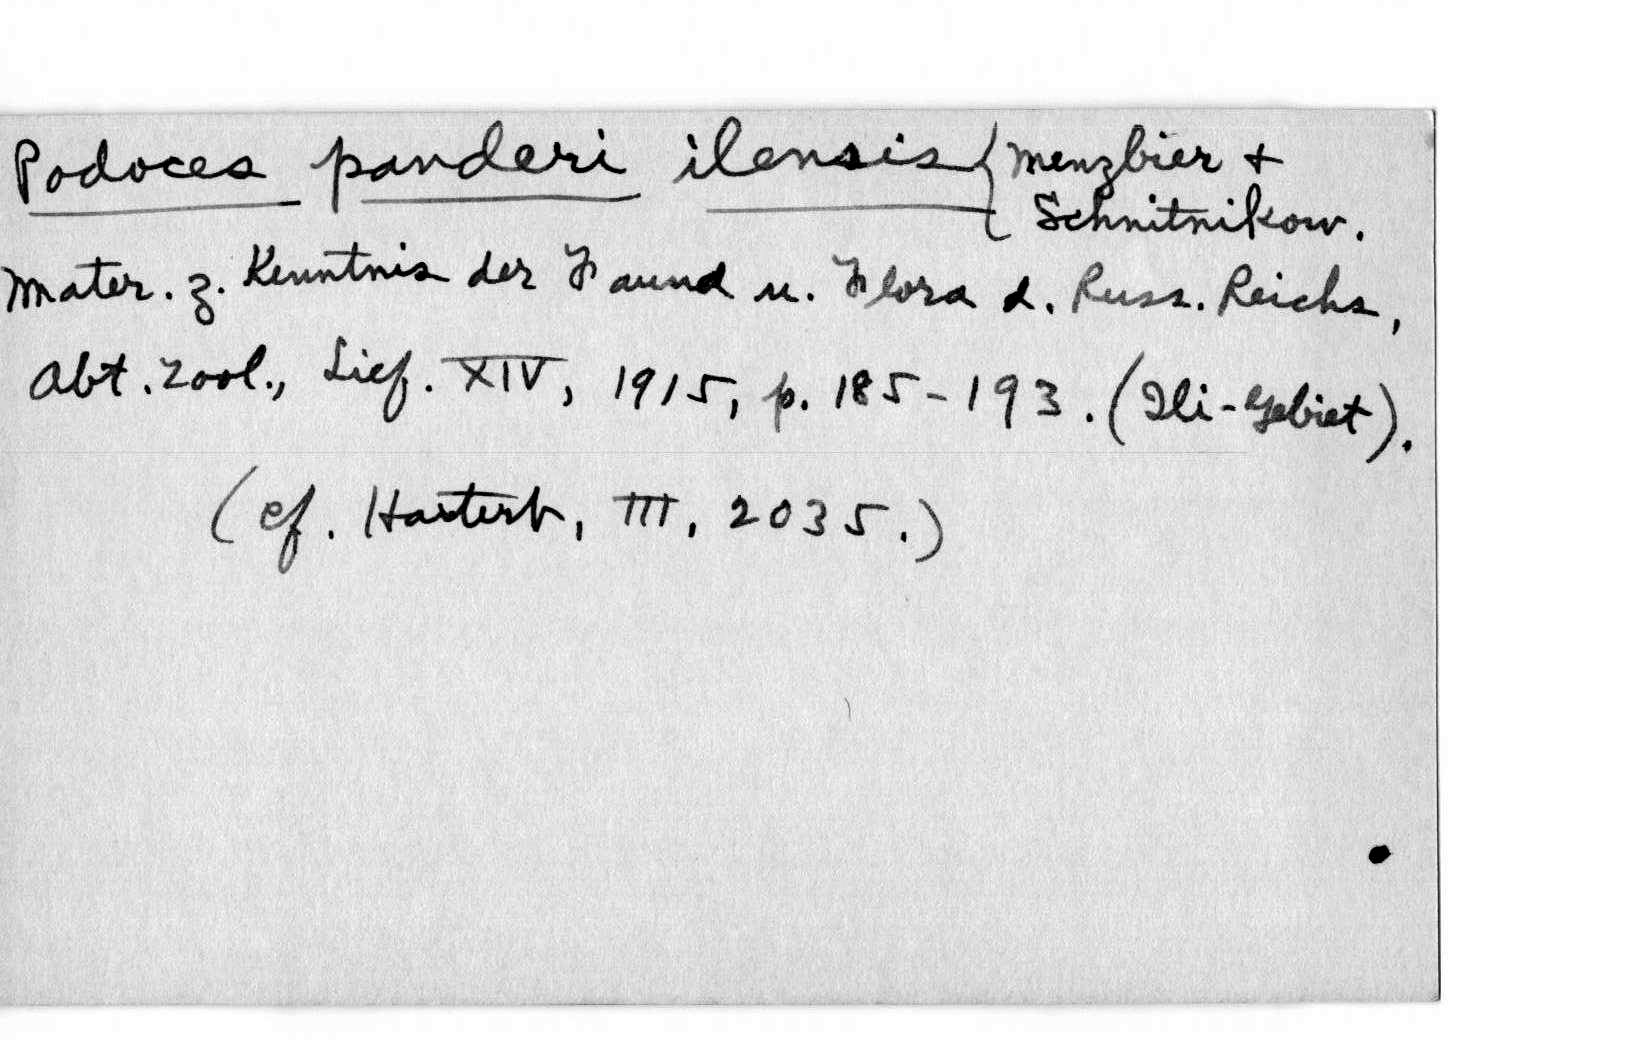 Podoces panderi ilensis { Menzbier +
Schnitnikow.
Mater. z. Kenntnis der Fauna u. Flora d. Russ. Reichs,
Abt. Zool., Lief. XIV, 1915, p. 185-193. (Ili-Gebiet).
(cf. Hartert, III, 2035.)